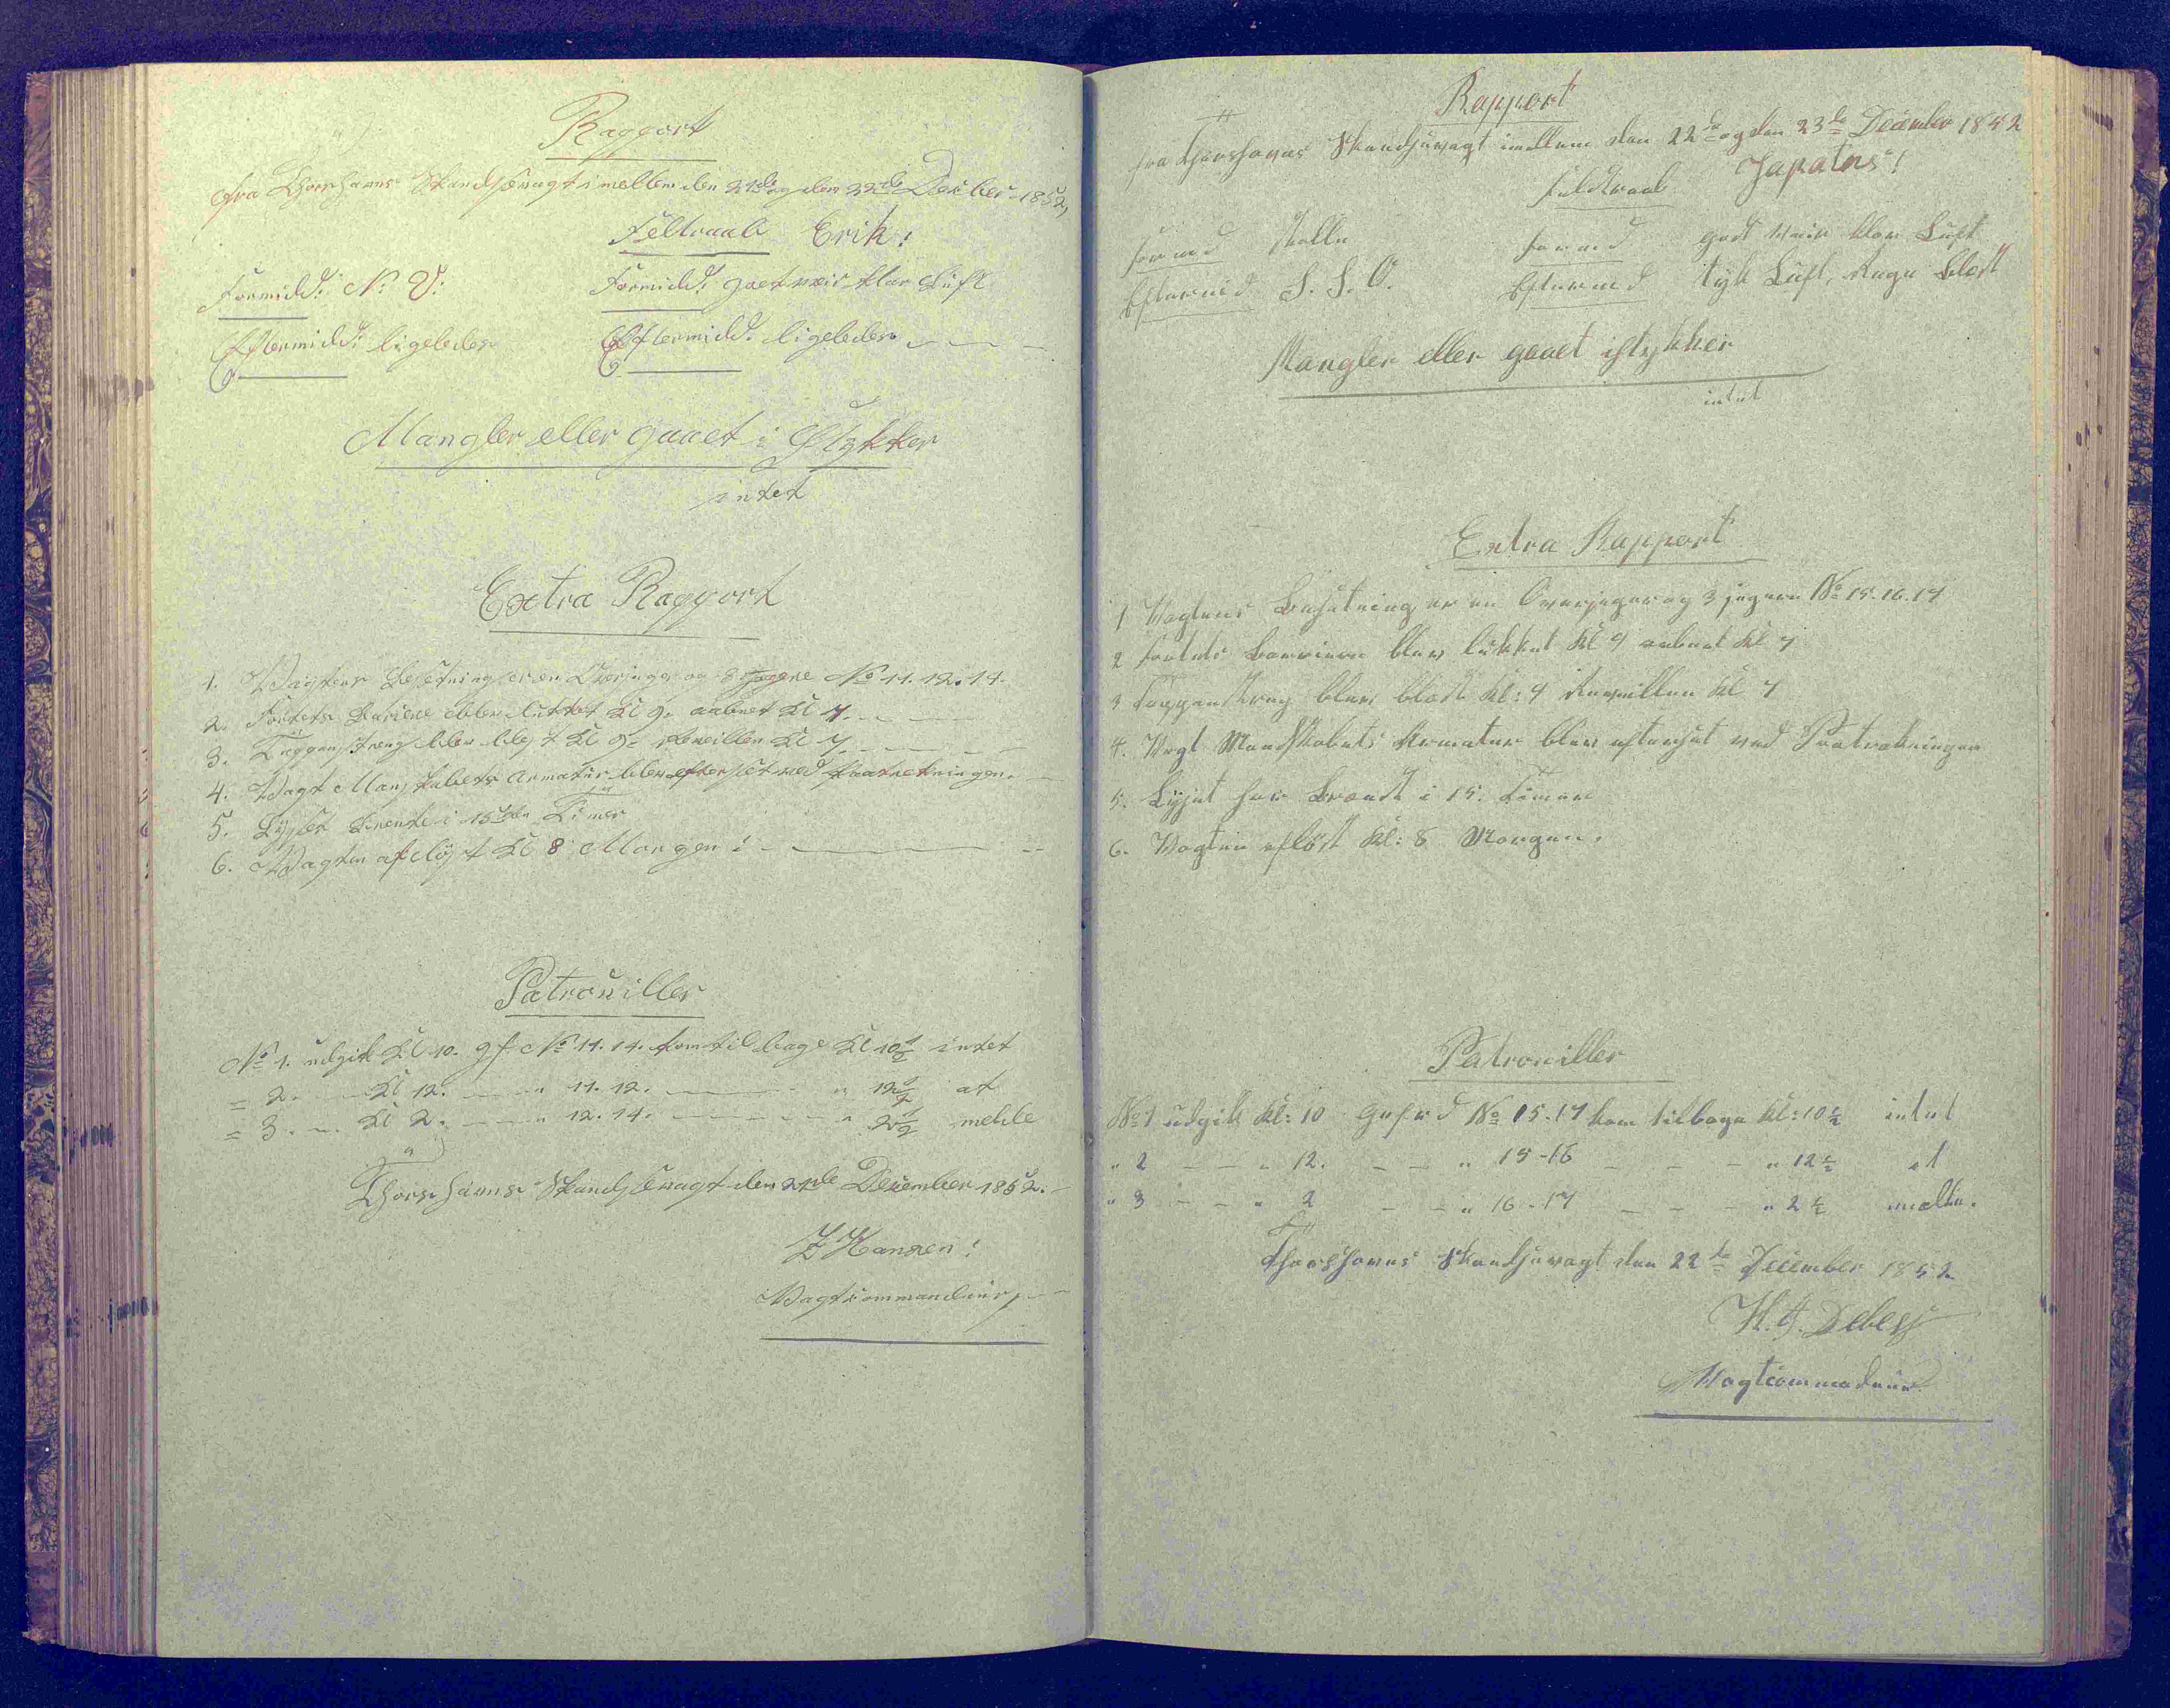 Rapport
fra Thorshavns Skandsevagt imellem den 21de og den 22de Decbber 1852,
Feltraab Erik!
Formidd: N. O: Formidd: goet veir klar Luft
Eftermidd: ligeledes Eftermidd: ligeledes
Mangler eller gaaet i Stykker
intet
Extra Rapport
1. Vagtens Besetning er en Overjæger og 3 Jægere No 11. 12. 14.
2. Fortets Bariere blev lukket Kl 9. aabnet Kl 7.
3. Tappenstreg blev blest Kl 9. Reveillen Kl 7.
4. Vagt Manskabets Armatur blev efterset ved Paatredningen.
5. Lyset Brente i 15ten Timer
6. Vagten afløst Kl 8 Morgen:
Patrouiller
No 1. udgik Kl 10. gf No 11. 14. kom tilbage Kl 10½ intet
= 2. Kl 12. " 11. 12. " 12½ at
= 3. " Kl 2. " 12. 14. " 2½ melde
Thorshavns Skandsevagt den 21de December 1852.
Hansen!
Vagtcommandeur,
Rapport
fra Thorshavns Skandsevagt imellem den 22de og den 23de December 1852
Feldtraab Japatus!
Formd Stille Formd godt Veir klar Luft
Eftermd S. S. O. Eftermd tyk Luft, Regn Blæst
Mangler eller gaaet istykker
intet
Extra Rapport
1 Vagtens Besætning er en Overjæger og 3 jægere No 15. 16. 17
2 Fortets Barriere blev lukket Kl 9 aabnet Kl 7
3 Tappenstreg blev blæst Kl: 9 Reveillen Kl 7
4. Vagt Mandskabets Armatur blev efterset ved Paatrædningen
5. Lyset har Brændt i 15. Timer
6. Vagten afløst Kl: 8 Morgen.
Patrouiller
No 1 udgik Kl: 10 Gefrd No 15-17 kom tilbage Kl: 10½ intet
" 2 - - " 12. - - " 15-16 - - - " 12½ at
" 3 - - " 2 - - " 16-17 - - - " 2½ melde.
Thorshavns Skandsevagt den 22de December 1852
H. J. Debess
Vagtcommadeur